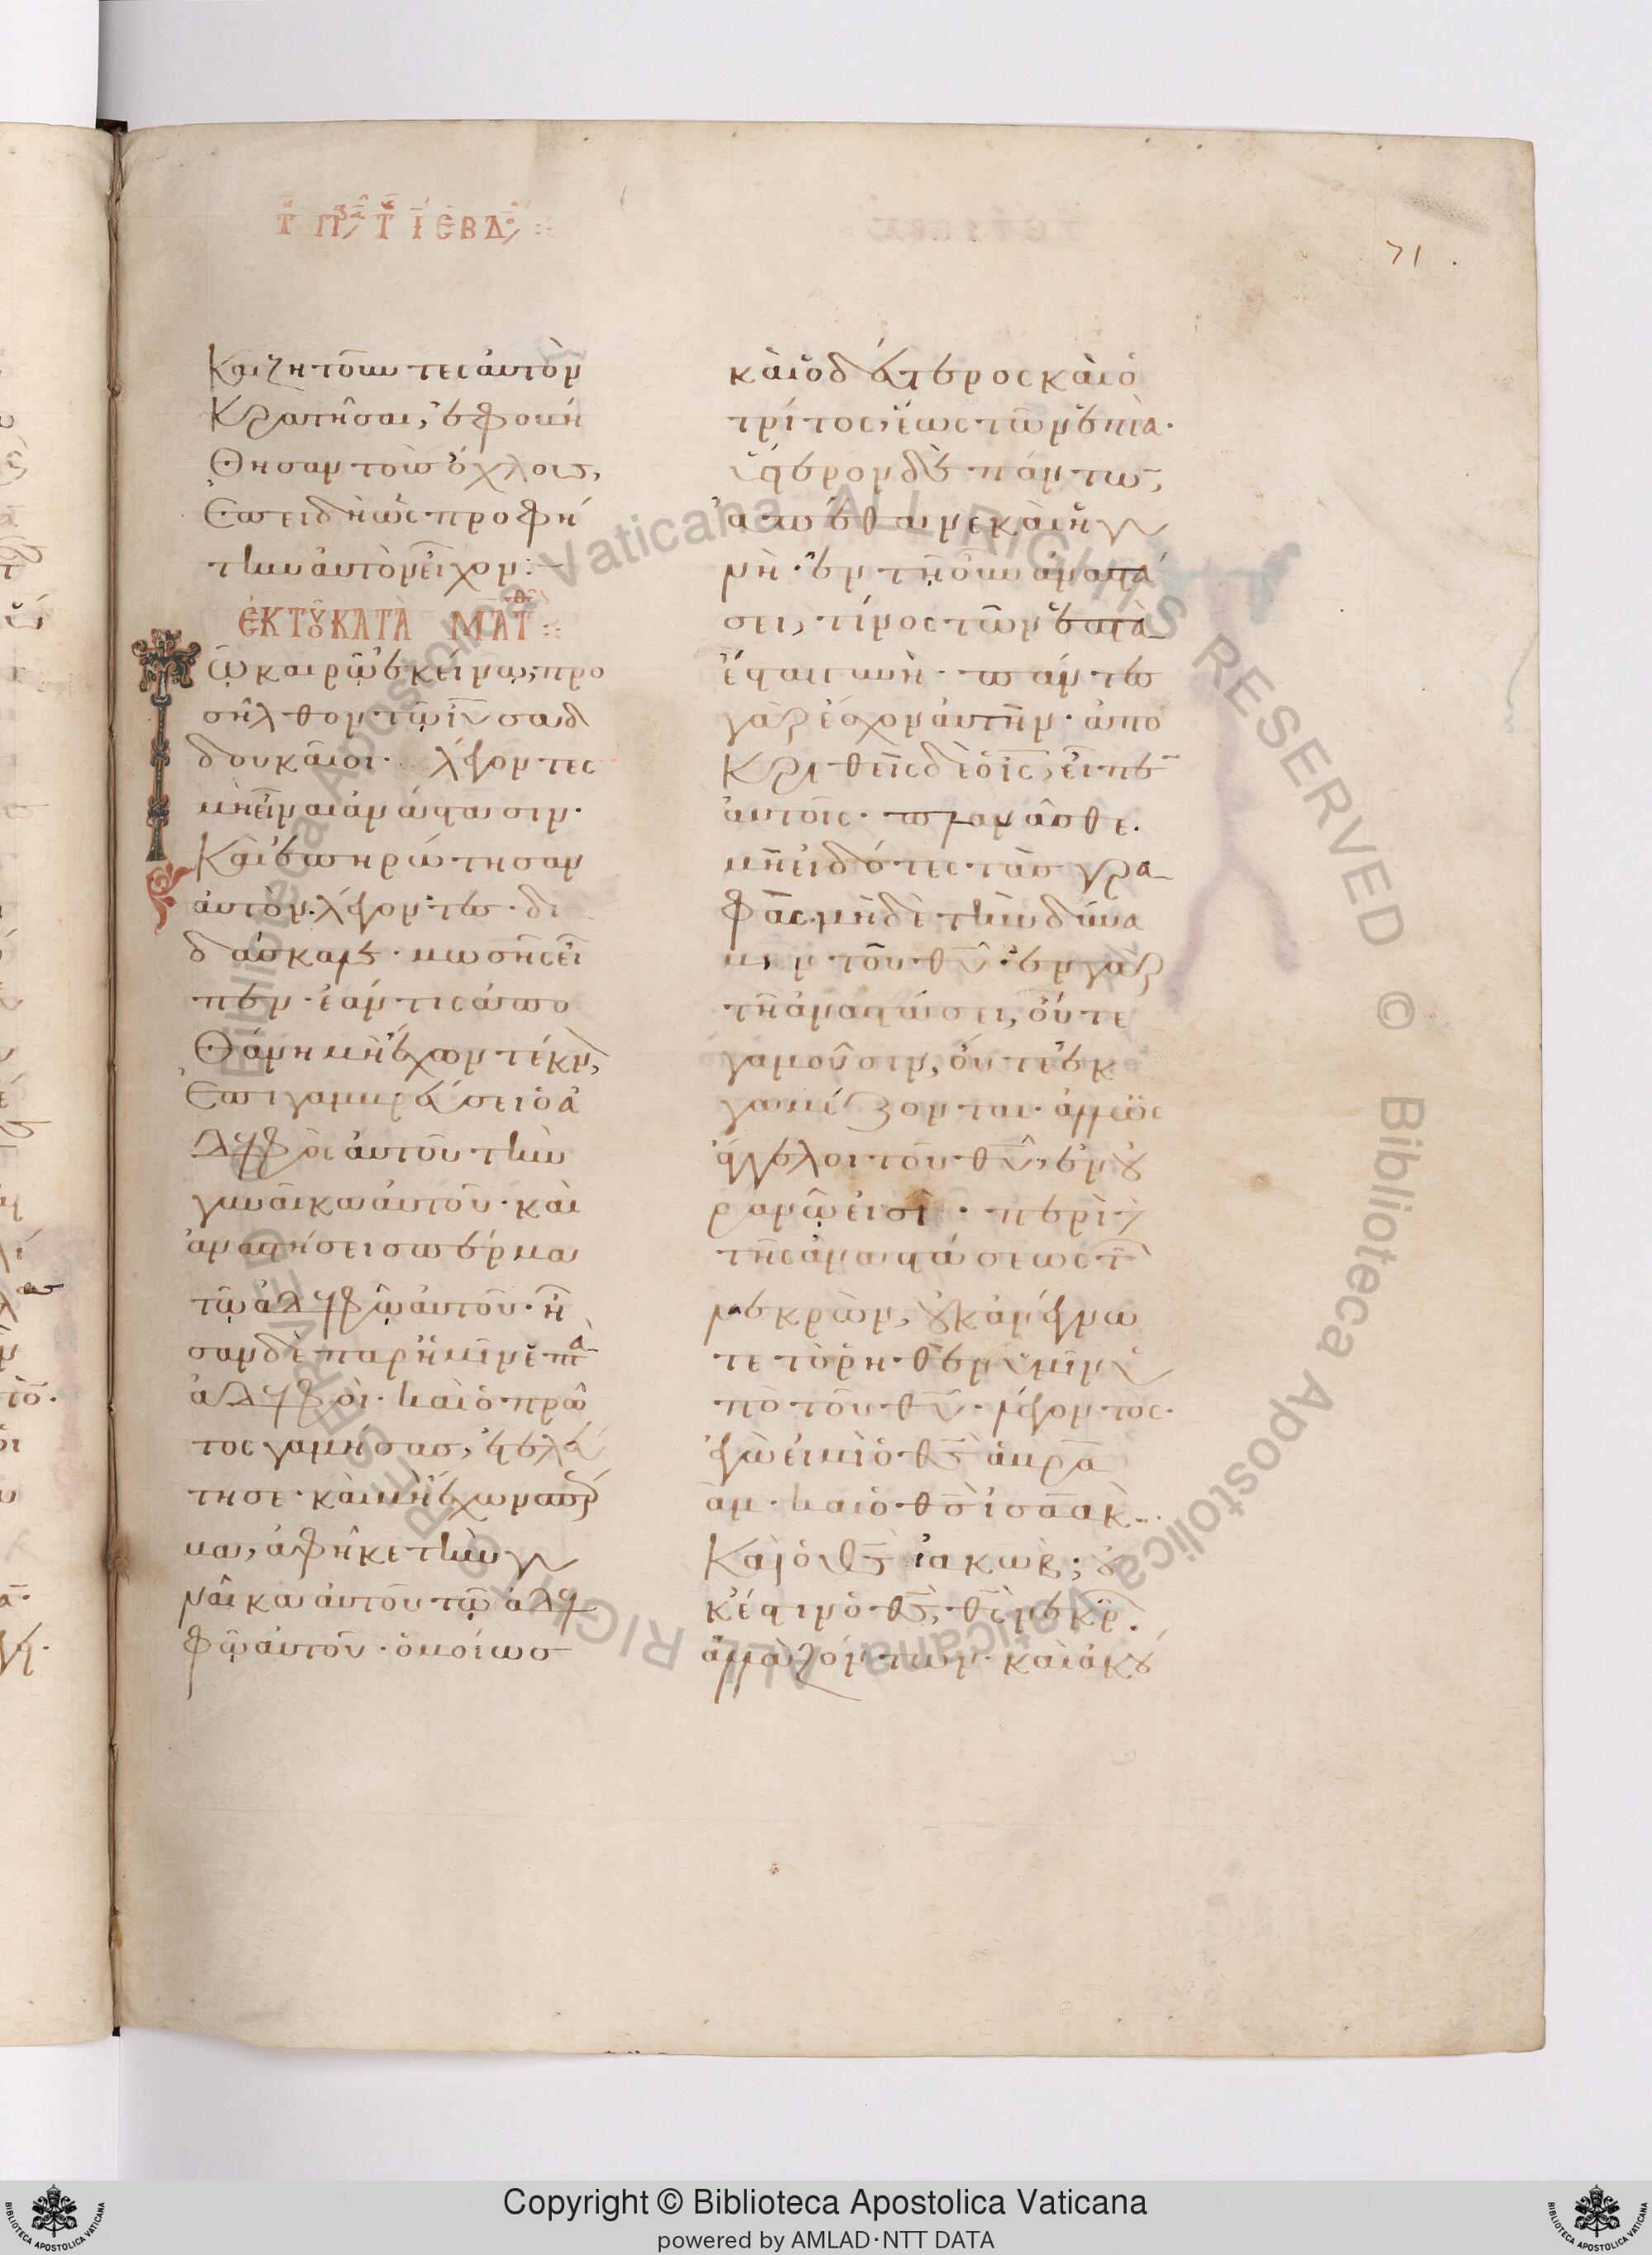 71
Καὶ ζητοῦντες αὐτὸν
κρατῆσαι, ἐφοβή
θησαν τοὺς ὄχλους,
ἐπειδὴ ὡς προφή
την αὐτὸν εἶχον:~
ἐκ τοῦ κατὰ Ματθ
Τῷ καιρῷ ἐκείνῳ, προ
σῆλθον τῷ ιυ σαδ
δουκαῖοι· λέγοντες
μὴ εἶναι ἀνάστασιν·
Καὶ ἐπηρώτησαν
αὐτὸν λέγοντες· δι
δάσκαλε· μωσῆς εἶ
πεν· ἐάν τις ἀπο
θάνη μὴ ἔχων τέκν,
ἐπιγαμβρεύσει ὁ ἀ
δελφὸς αὐτοῦ τὴν
γυναῖκα αὐτοῦ· καὶ
ἀναστήσει σπέρμα
τῷ ἀδελφῷ αὐτοῦ· ἦ
σαν δὲ παρ' ἡμῖν ἑπτὰ
ἀδελφοὶ· καὶ ὁ πρῶ
τος γαμήσας, ἐτελεύ
τησε· καὶ μὴ ἔχων σπέρ
μα, ἀφῆκε τὴν γυ
ναῖκα αὐτοῦ τῷ ἀδελ
φῷ αὐτοῦ· ὁμοίως
καὶ ὁ δεύτερος καὶ ὁ
τρίτος, ἕως τῶν ἑπτά·
ὕστερον δὲ πάντων,
ἀπέθανε καὶ ἡ γυ
νή· ἐν τῇ οὖν ἀναστά
σει, τίνος τῶν ἑπτὰ
ἔσται γυνή· πάντες
γὰρ ἔσχον αὐτήν· ἀπο
κριθεὶς δὲ ὁ ις, εἶπεν
αὐτοῖς· πλανᾶσθε·
μὴ εἰδότες τὰς γρα
φάς· μηδὲ τὴν δύνα
μιν τοῦ θυ· ἐν γὰρ
τῇ ἀναστάσει, οὔτε
γαμοῦσιν, οὔτε ἐκ
γαμίζονται· ἀλλ' ὡς
ἄγγελοι τοῦ θυ, ἐν οὐ
ρανῷ εἰσὶ· περὶ δὲ
τῆς ἀναστάσεως τῶν
νεκρῶν, οὐκ ἀνέγνω
τε τὸ ῥηθὲν ὑμῖν ὑ
πὸ τοῦ θυ· λέγοντος·
ἐγώ εἰμι ὁ θς ἀβρα
άμ· καὶ ὁ θς ἰσαάκ·
Καὶ ὁ θς ἰακώβ; οὐ
κ ἔστιν ὁ θς, θς νεκρ.
ἀλλὰ ζώντων· καὶ ἀκού